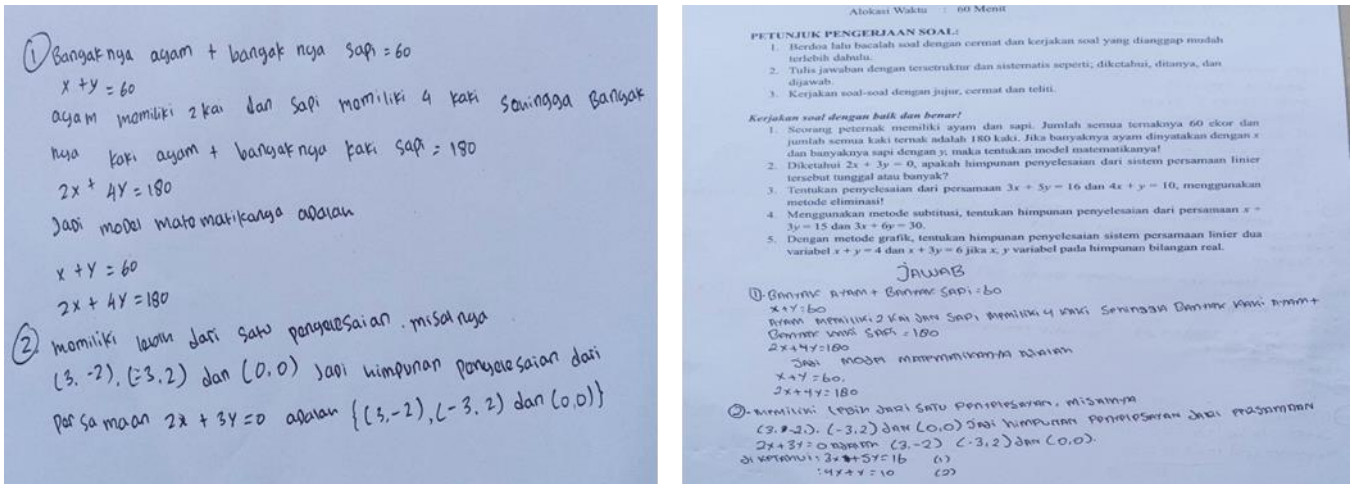 ① Bangaknya ayam + bangak nya sapi = 60
x + y = 60
ayam memiliki 2 kai dan sapi memiliki 4 kaki sehingga Bangak
nya kaki ayam + bangak nya kaki sapi = 180
2x + 4y = 180
Jadi model matematikanya adalah
x + y = 60
2x + 4y = 180
② memiliki lebih dari satu pengelesaian. misalnga
(3. -2). (-3, 2) dan (0,0) Jadi himpunan pengelesaian dari
persamaan 2x + 3y = 0 adalah {(3,-2), (-3, 2) dan (0,0)}
Alokasi Waktu : 60 Menit
PETUNJUK PENGERJAAN SOAL:
1. Berdoa lalu bacalah soal dengan cermat dan kerjakan soal yang dianggap mudah
terlebih dahulu.
2. Tulis jawaban dengan terstruktur dan sistematis seperti; diketahui, ditanya, dan
dijawab.
3. Kerjakan soal-soal dengan jujur, cermat dan teliti.
Kerjakan soal dengan baik dan benar!
1. Seorang peternak memiliki ayam dan sapi. Jumlah semua ternaknya 60 ekor dan
jumlah semua kaki ternak adalah 180 kaki. Jika banyaknya ayam dinyatakan dengan x
dan banyaknya sapi dengan y, maka tentukan model matematikanya!
2. Diketahui 2x + 3y = 0, apakah himpunan penyelesaian dari sistem persamaan linier
tersebut tunggal atau banyak?
3. Tentukan penyelesaian dari persamaan 3x + 5y = 16 dan 4x + y = 10, menggunakan
metode eliminasi!
4. Menggunakan metode subtitusi, tentukan himpunan penyelesaian dari persamaan x +
3y = 15 dan 3x + 6y = 30.
5. Dengan metode grafik, tentukan himpunan penyelesaian sistem persamaan linier dua
variabel x + y = 4 dan x + 3y = 6 jika x, y variabel pada himpunan bilangan real.
JAWAB
①. BANYAK AYAM + BANYAK SAPI = 60
x + y = 60
AYAM MEMILIKI 2 KAI DAN SAPI MEMILIKI 4 KAKI SEHINGGA BANYAK KAKI AYAM +
BANYAK KAKI SAPI = 180
2x + 4y = 180
JADI MODEL MATEMATIKANYA ADALAH
x + y = 60.
2x + 4y = 180
②. MEMILIKI LEBIH DARI SATU PENYELESAYAN, MISALNYA
(3, -2). (-3,2) DAN (0,0) JADI HIMPUNAN PENYELESAYAN DARI
2x + 3y = 0 ADALAH (3,-2) (-3,2) DAN (0,0).
DI KETAHUI : 3x + 5y = 16 (1)
: 4x + y = 10 (2)